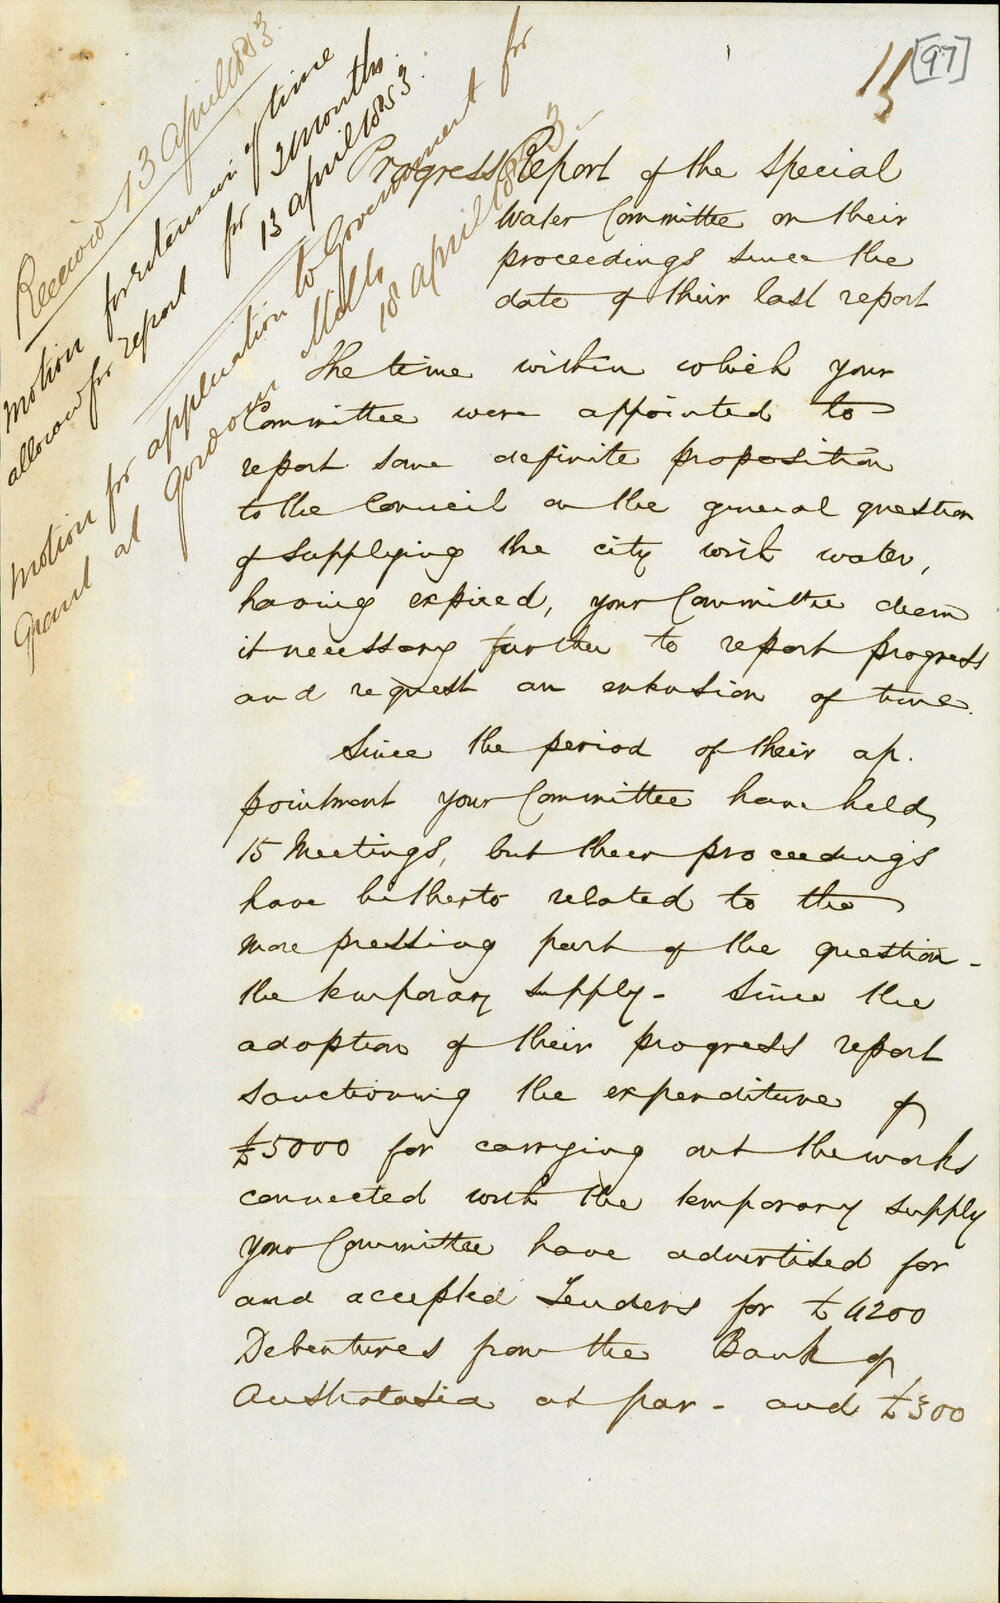 [97]
Received 13 April 1853.
Motion for Extension of time
allowed for report for 2 Months.
13 April 1853.
Motion for application to Government for
Grant at Gordons Mills
18 April 1853.
Progress Report of the Special
Water Committee on their
proceedings since the
date of their last report
The time within which your
Committee were appointed to
report some definite proposition
to the Council on the general question
of supplying the city with water,
having expired, your Committee deem
it necessary further to report progress
and request an extension of time.
Since the period of their ap.
pointment your Committee have held
15 Meetings, but their proceedings
have hitherto related to the
more pressing part of the question -
the temporary supply - Since the
adoption of their progress report
sanctioning the expenditure of
£5000 for carrying out the works
connected with the temporary supply
your Committee have advertised for
and accepted Tenders for £4200
Debentures from the Bank of
Australasia at par - and £300